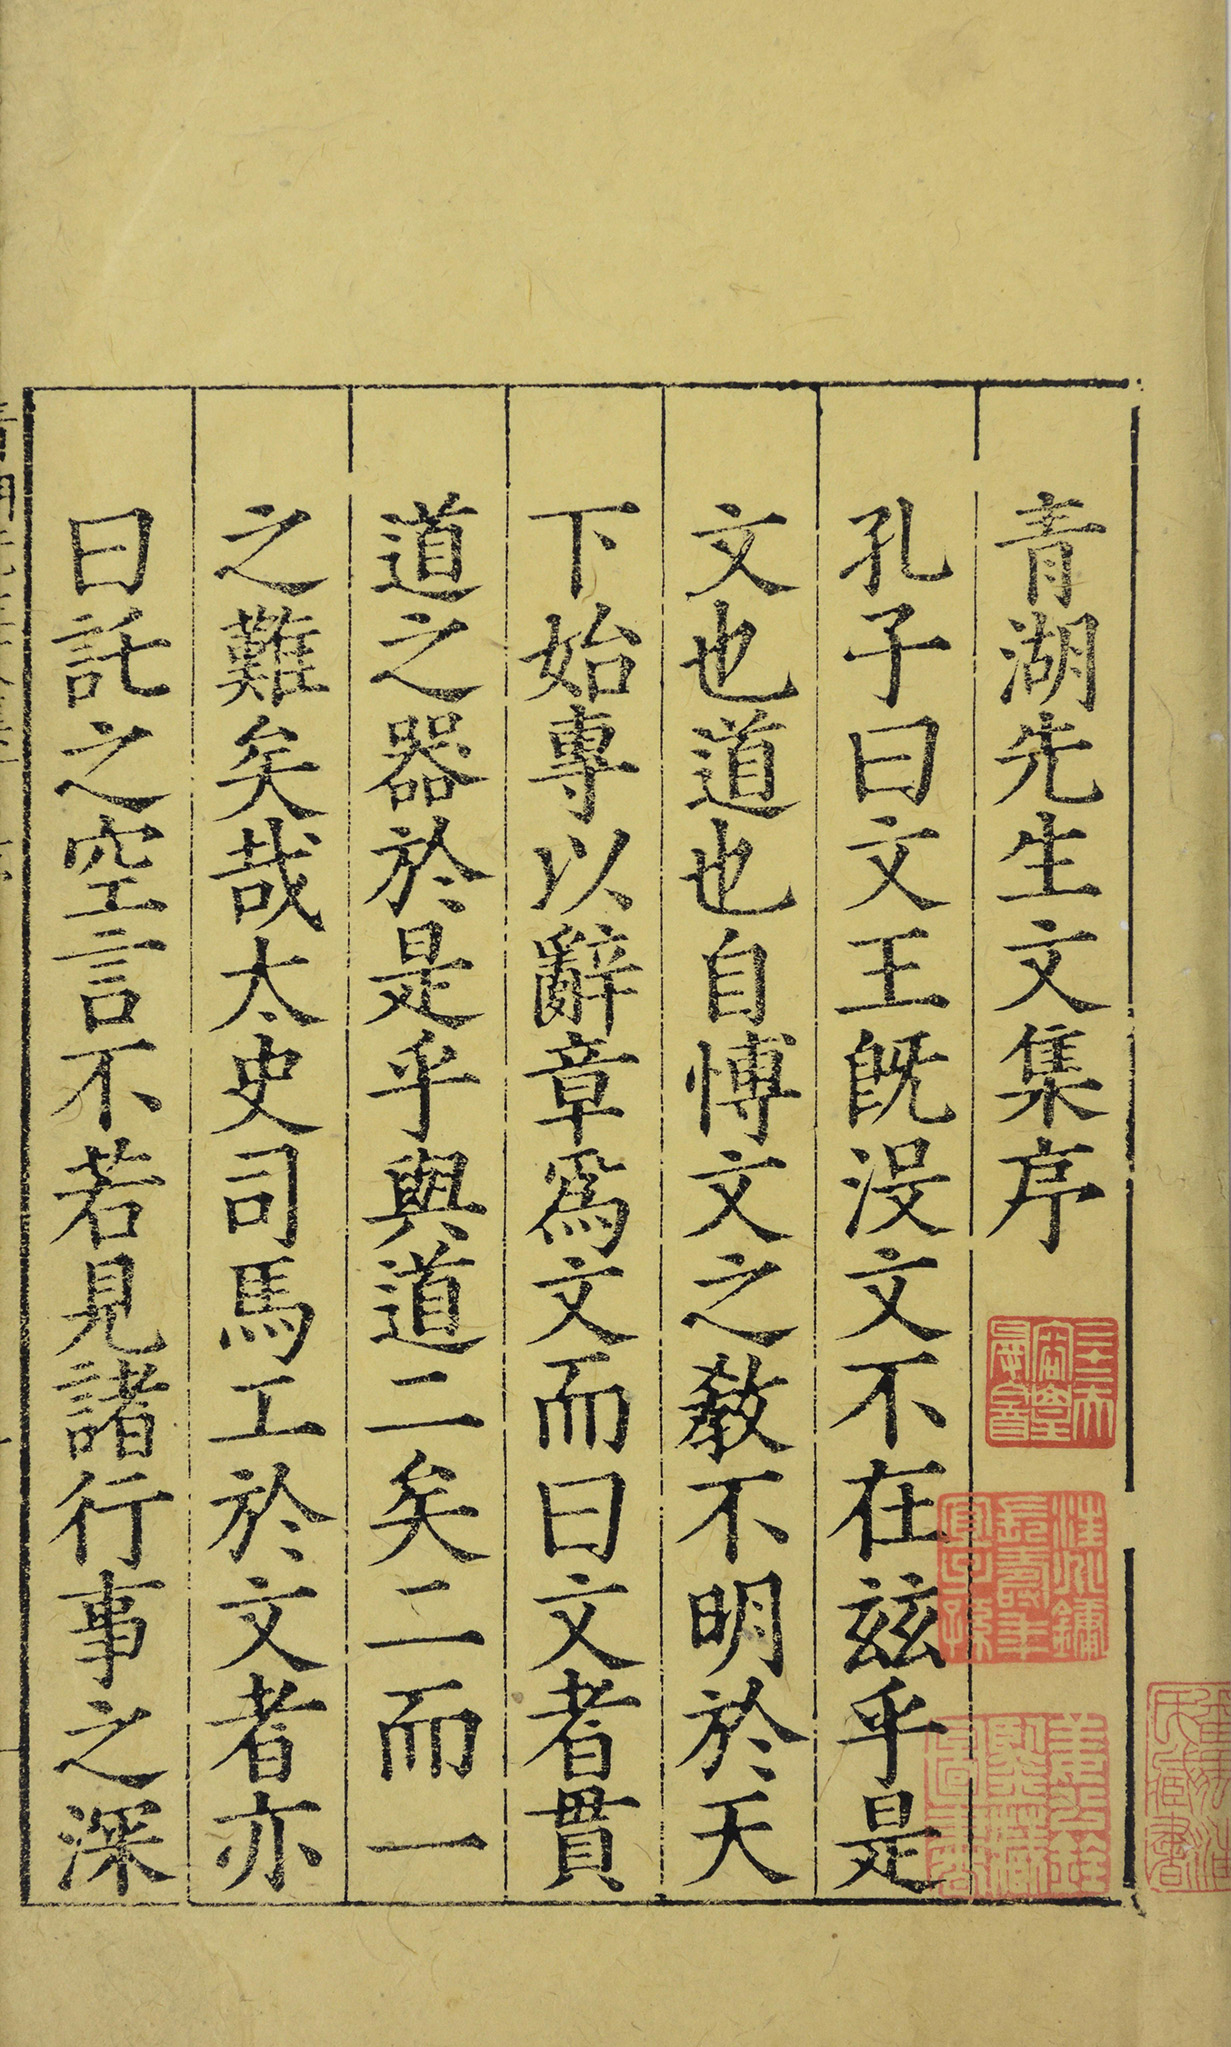 青湖先生文集序
孔子曰文王旣没文不在兹乎是
文也道也自博文之敎不明於天
下始專以辭章爲文而曰文者貫
道之器於是乎與道二矣二而一
之難矣哉太史司馬工於文者亦
曰託之空言不若見諸行事之深